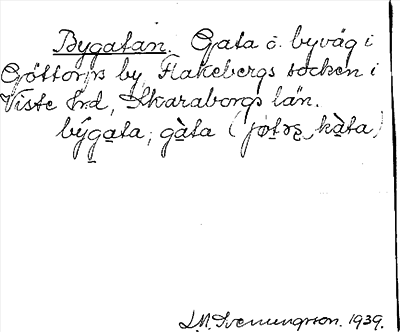 Bygatan. Gata o. byväg i
Göttorps by, Flakebergs socken i
Viste hrd, Skaraborgs län.
by̋ga̠ta, gàta (
J.M. Svenungsson. 1939.